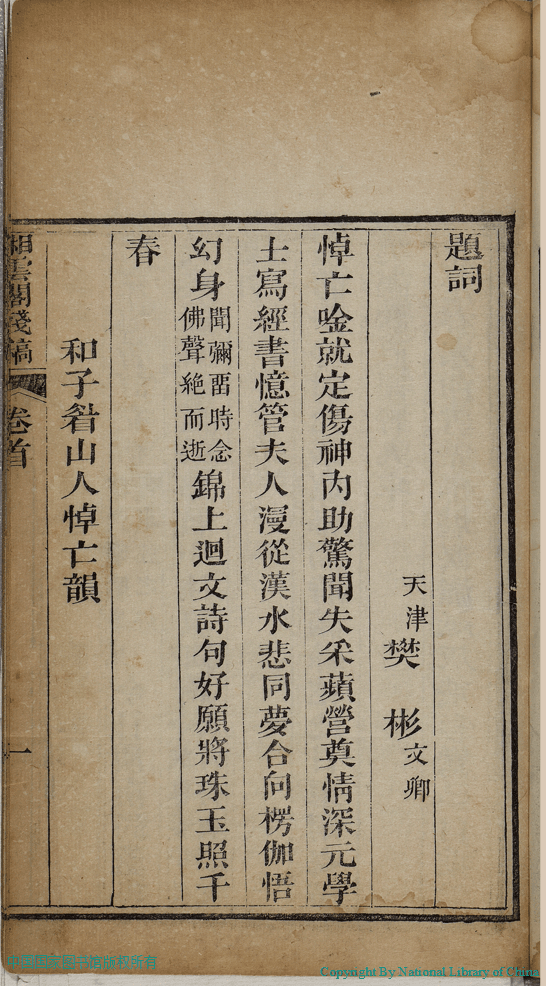 題詞
天津樊彬文卿
悼亡唫就定傷神內助驚聞失采蘋營奠情深元學
士寫經書憶管夫人漫從漢水悲同夢合向楞伽悟
幻身聞彌畱時念佛聲絕而逝錦上迴文詩句好願將珠玉照千
春
和子山人悼亡韻
湘雲閣殘稿 卷首 一
中国国家图书馆版权所有
Copyright By National Library of China